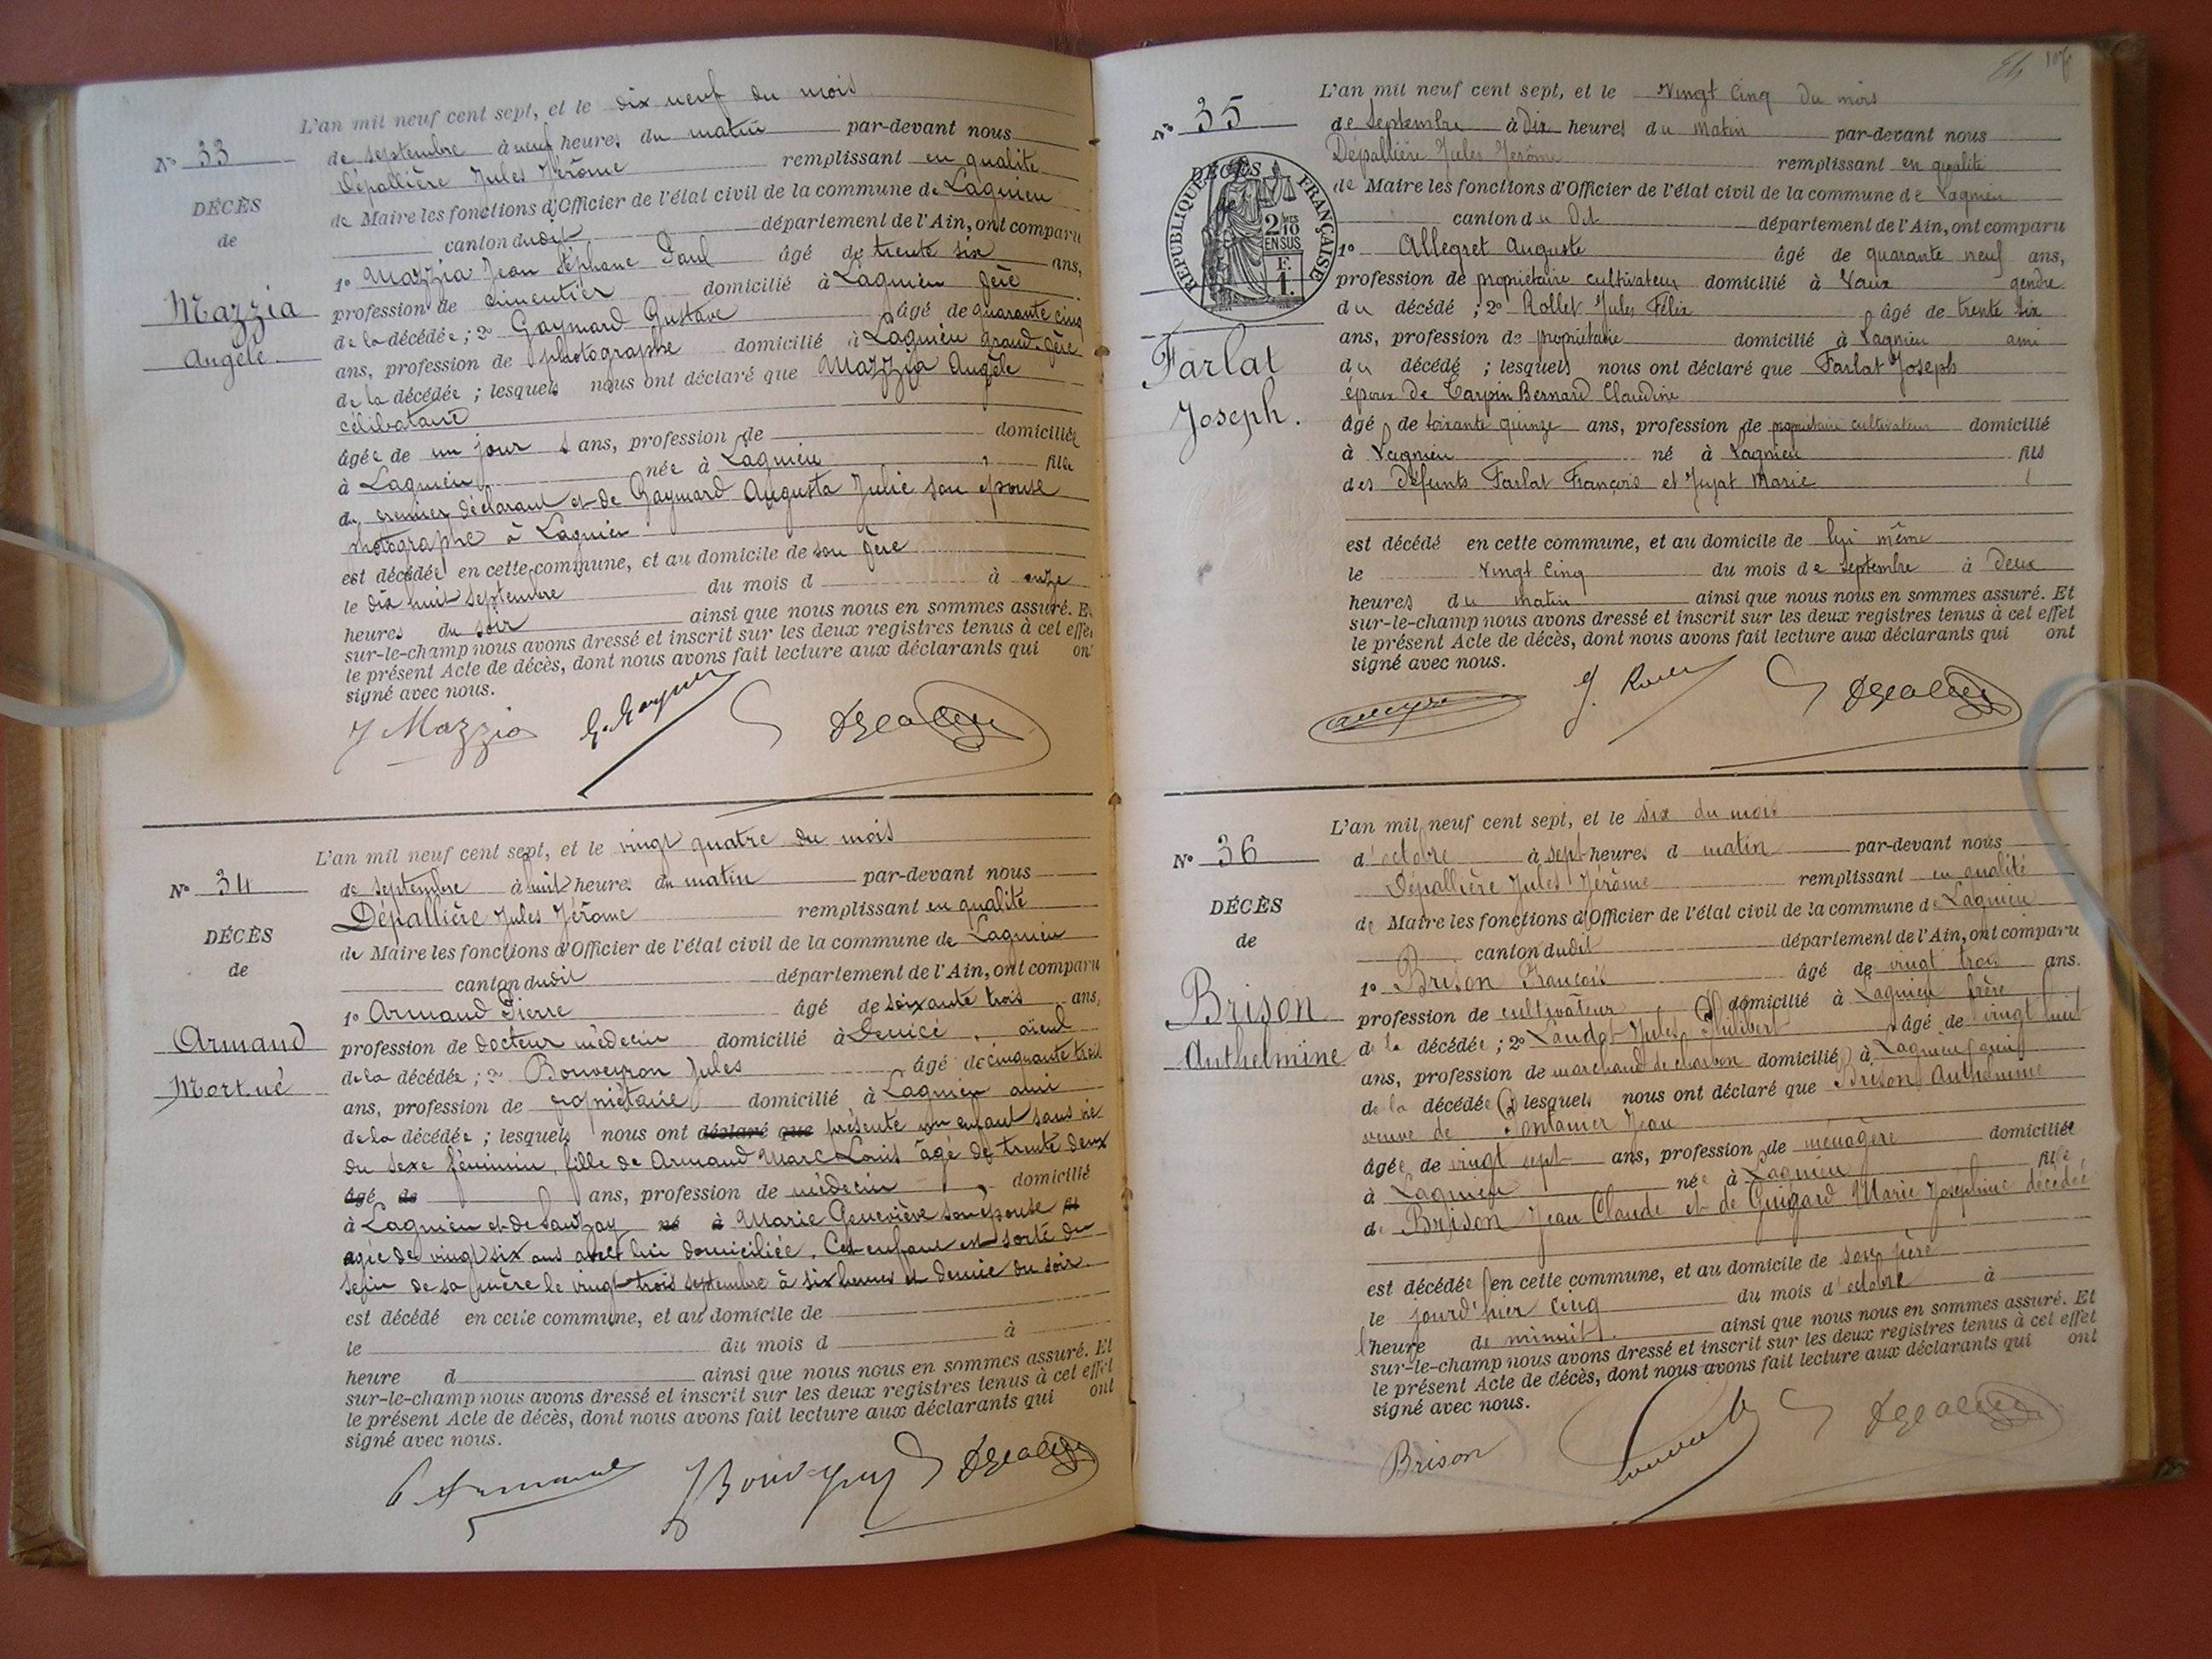 L'an mil neuf cent sept, et le dix neuf du mois
de septembre à neuf heures du matin par-devant nous
Dépallière Jules Jérôme remplissant en qualité
de Maire les fonctions d'Officier de l'état civil de la commune de Lagnieu
canton dudit département de l'Ain, ont comparu
1º Mazzia Jean Stéphane Paul âgé de trente six ans,
profession de cimentier domicilié à Lagnieu père
de la décédée; 2º Gaymard Gustave âgé de quarante cinq
ans, profession de photographe domicilié à Lagnieu grand-père
de la décédée; lesquels nous ont déclaré que Mazzia Angèle
célibataire
âgée de un jour ans, profession de domiciliée
à Lagnieu née à Lagnieu fille
du premier déclarant et de Gaymard Augusta Julie son épouse
photographe à Lagnieu
est décédée en cette commune, et au domicile de son père
le dix huit septembre du mois d à onze
heures du soir ainsi que nous nous en sommes assuré. Et
sur-le-champ nous avons dressé et inscrit sur les deux registres tenus à cet effet
le présent Acte de décès, dont nous avons fait lecture aux déclarants qui ont
signé avec nous.
J Mazzia
Nº 33
DÉCÈS
de
Mazzia
Angèle
L'an mil neuf cent sept, et le vingt quatre du mois
de septembre à huit heures du matin par-devant nous
Dépallière Jules Jérôme remplissant en qualité
de Maire les fonctions d'Officier de l'état civil de la commune de Lagnieu
canton dudit département de l'Ain, ont comparu
1º Armand Pierre âgé de soixante trois ans,
profession de docteur médecin domicilié à Denicé, aïeul
de la décédée; 2º Bouveyron Jules âgé de cinquante trois
ans, profession de propriétaire domicilié à Lagnieu ami
de la décédée; lesquels nous ont déclaré que présenté un enfant sans vie
du sexe féminin, fille de Armand Marc Louis âgé de trente deux
âgé de ans, profession de médecin, domicilié
à Lagnieu et de Sauzay né à Marie Geneviève son épouse
agée de vingt six ans avec lui domiciliée. Cet enfant est sorti du
sein de sa mère le vingt-trois septembre à six heures et demie du soir.
est décédé en cette commune, et au domicile de
le du mois d à
heure d ainsi que nous nous en sommes assuré. Et
sur-le-champ nous avons dressé et inscrit sur les deux registres tenus à cet effet
le présent Acte de décès, dont nous avons fait lecture aux déclarants qui ont
signé avec nous.
P Armand
Nº 34
DÉCÈS
de
Armand
Mort-né
L'an mil neuf cent sept, et le Vingt Cinq du mois
de Septembre à Dix heures du Matin par-devant nous
Dépallière Jules Jérôme remplissant en qualité
de Maire les fonctions d'Officier de l'état civil de la commune de Lagnieu
canton du dit département de l'Ain, ont comparu
1º Allegret Auguste âgé de quarante neuf ans,
profession de propriétaire cultivateur domicilié à Vaux gendre
du décédé; 2º Rollet Jules Félix âgé de trente six
ans, profession de propriétaire domicilié à Lagnieu ami
du décédé; lesquels nous ont déclaré que Farlat Joseph
époux de Carpin Bernard Claudine
âgé de soixante quinze ans, profession de propriétaire cultivateur domicilié
à Lagnieu né à Lagnieu fils
des Défunts Farlat François et Juyat Marie
est décédé en cette commune, et au domicile de lui même
le Vingt Cinq du mois de septembre à Deux
heures du matin ainsi que nous nous en sommes assuré. Et
sur-le-champ nous avons dressé et inscrit sur les deux registres tenus à cet effet
le présent Acte de décès, dont nous avons fait lecture aux déclarants qui ont
signé avec nous.
Nº 35
DÉCÈS
de
RÉPUBLIQUE FRANÇAISE
2 MES
10
EN SUS
F.
1.
Farlat
Joseph.
L'an mil neuf cent sept, et le six du mois
d'octobre à sept heures d matin par-devant nous
Dépallière Jules Jérôme remplissant en qualité
de Maire les fonctions d'Officier de l'état civil de la commune de Lagnieu
canton dudit département de l'Ain, ont comparu
1º Brison François âgé de vingt trois ans.
profession de cultivateur domicilié à Lagnieu frère
de la décédée; 2º Jules Philibert âgé de vingt huit
ans, profession de marchand de charbon domicilié à Lagnieu
de la décédée; lesquels nous ont déclaré que Brison Anthelmine
veuve de Jean
âgée de vingt sept ans, profession de ménagère domiciliée
à Lagnieu née à Lagnieu fille
de Brison Jean Claude et de Guigard Marie Joséphine décédée
est décédée en cette commune, et au domicile de son père
le jourd'hier cinq du mois d'octobre à
l'heure de minuit. ainsi que nous nous en sommes assuré. Et
sur-le-champ nous avons dressé et inscrit sur les deux registres tenus à cet effet
le présent Acte de décès, dont nous avons fait lecture aux déclarants qui ont
signé avec nous.
Brison
Nº 36
DÉCÈS
de
Brison
Anthelmine